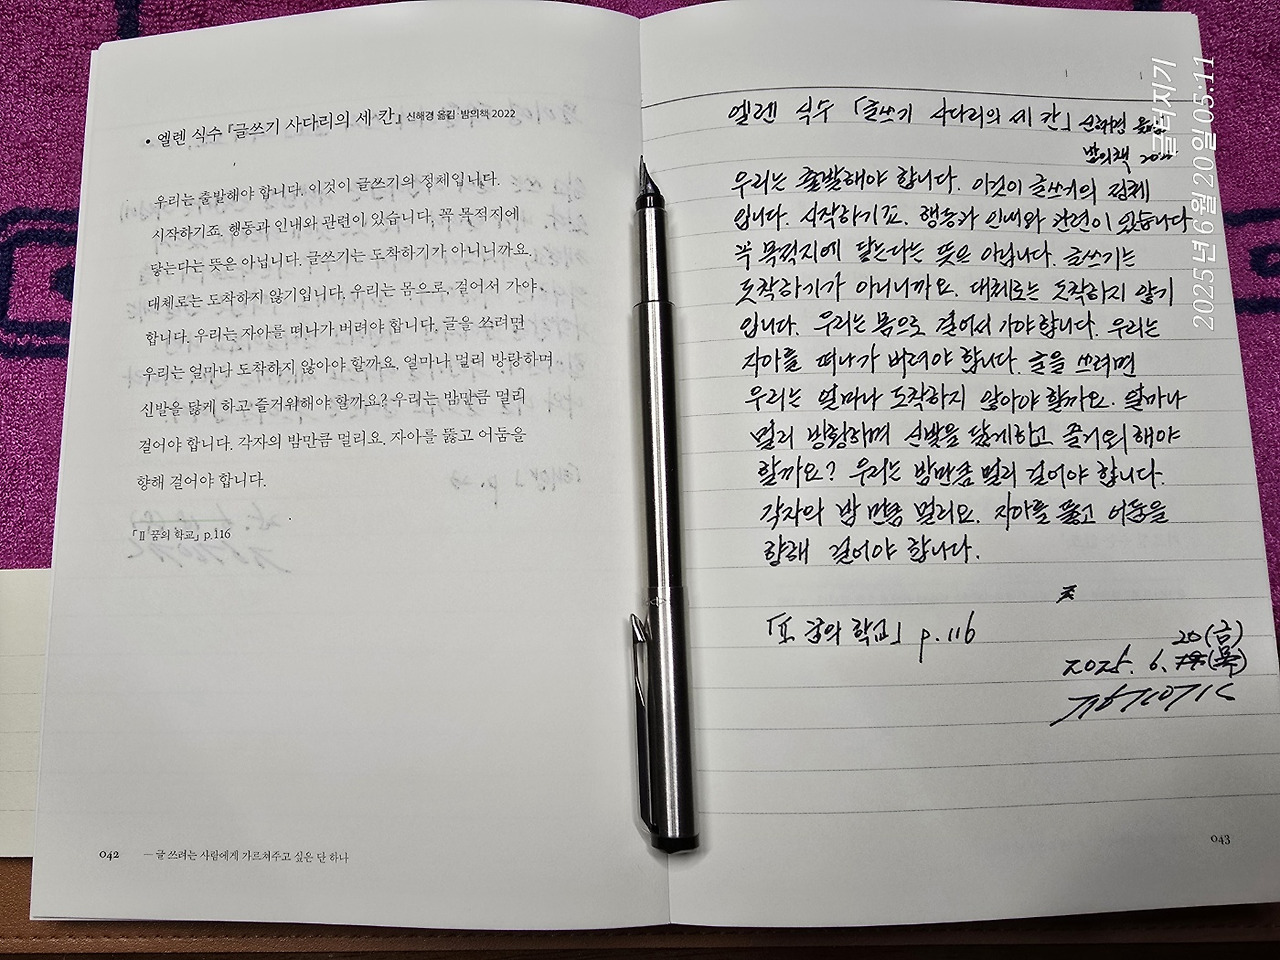 • 엘렌 식수 『글쓰기 사다리의 세 칸』 신해경 옮김 밤의책 2022
우리는 출발해야 합니다. 이것이 글쓰기의 정체입니다.
시작하기죠. 행동과 인내와 관련이 있습니다. 꼭 목적지에
닿는다는 뜻은 아닙니다. 글쓰기는 도착하기가 아니니까요.
대체로는 도착하지 않기입니다. 우리는 몸으로, 걸어서 가야
합니다. 우리는 자아를 떠나가 버려야 합니다. 글을 쓰려면
우리는 얼마나 도착하지 않아야 할까요. 얼마나 멀리 방랑하며
신발을 닳게 하고 즐거워해야 할까요? 우리는 밤만큼 멀리
걸어야 합니다. 각자의 밤만큼 멀리요. 자아를 뚫고 어둠을
향해 걸어야 합니다.
「Ⅱ 꿈의 학교」 p.116
042 — 글 쓰려는 사람에게 가르쳐주고 싶은 단 하나
엘렌 식수 「글쓰기 사다리의 세 칸」 신해경 옮김
밤의책
우리는 출발해야 합니다. 이것이 글쓰기의 정체
입니다. 시작하기죠. 행동과 인내와 관련이 있습니다
꼭 목적지에 닿는다는 뜻은 아닙니다. 글쓰기는
도착하기가 아니니까요. 대체로는 도착하지 않기
입니다. 우리는 몸으로 걸어서 가야 합니다. 우리는
자아를 떠나가 버려야 합니다. 글을 쓰려면
우리는 얼마나 도착하지 않아야 할까요. 얼마나
멀리 방랑하며 신발을 닳게하고 즐거워해야
할까요? 우리는 밤만큼 멀리 걸어야 합니다.
각자의 밤 만큼 멀리요. 자아를 뚫고 어둠을
향해 걸어야 합니다.
「Ⅱ. 꿈의 학교」 p.116
20(금)
2025. 6.
043
글터지기
2025년 6월 20일 05:11